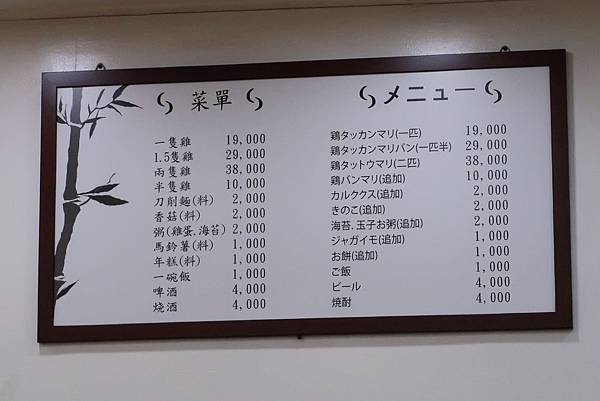 菜單
一隻雞 19,000
1.5隻雞 29,000
兩隻雞 38,000
半隻雞 10,000
刀削麵(料) 2,000
香菇(料) 2,000
粥(雞蛋,海苔) 2,000
馬鈴薯(料) 1,000
年糕(料) 1,000
一碗飯 1,000
啤酒 4,000
燒酒 4,000
メニュー
鶏タッカンマリ(一匹) 19,000
鶏タッカンマリバン(一匹半) 29,000
鶏タットウマリ(二匹) 38,000
鶏バンマリ(追加) 10,000
カルククス(追加) 2,000
きのこ(追加) 2,000
海苔,玉子お粥(追加) 2,000
ジャガイモ(追加) 1,000
お餅(追加) 1,000
ご飯 1,000
ビール 4,000
焼酎 4,000